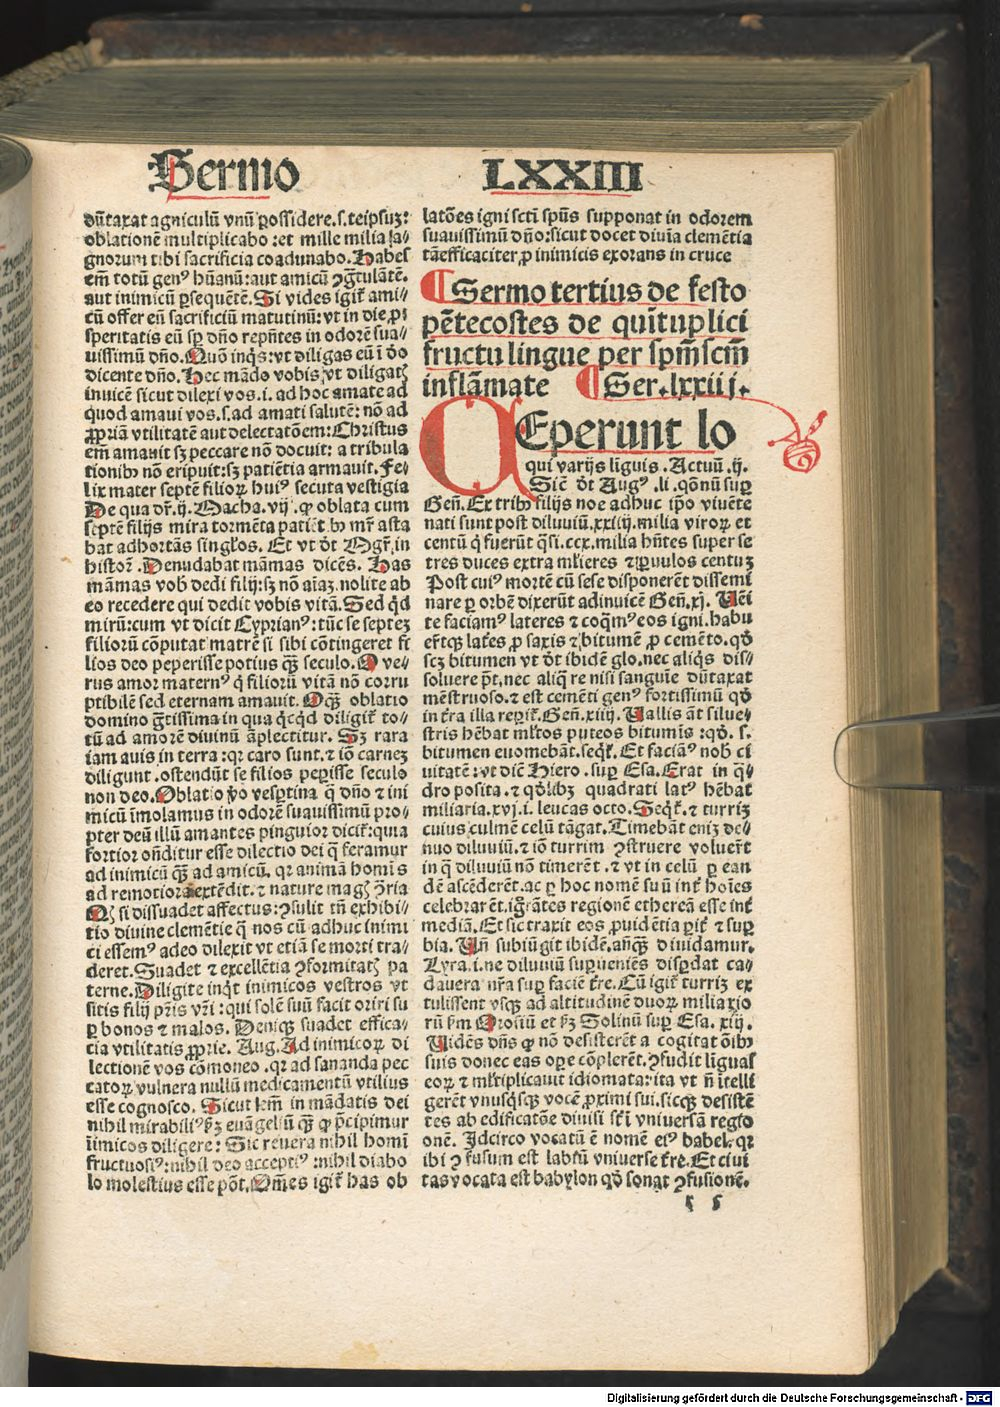 Sermo LXXIII
dūtaxat agniculū vnū possidere.s.teipsuz:
oblationē multiplicabo : et mille milia /a-
gnorum tibi sacrificia coadunabo. Habes
em̄ totū gen⁹ hūanū: aut amicū ꝯgr̄tulātē.
aut inimicū ꝑsequētē. Si vides igit᷑ ami/
cū offer eū sacrificiū matutinū: vt in die ꝓ/
speritatis eū sꝑ dn̄o repn̄tes in odorē sua/
uissimū dn̄o. Quō inqͥs: vt diligas eū ī do
dicente dn̄o. Hec mādo vobis vt diligatꝭ
inuicē sicut dilexi vos .i. ad hoc amate ad
quod amaui vos .s. ad amati salutē: nō ad
ꝓpriā vtilitatē aut delectatōem: Christus
em̄ amauit sꝫ peccare nō docuit: a tribula
tionibꝰ nō eripuit: sꝫ patiētia armauit. Fe/
lix mater septē filioꝝ hui⁹ secuta vestigia
De qua dr̄. ij. Macha. vij. ꝙ oblata cum
septē filijs mira tormēta patiēt᷑ hͦ mr̄ asta
bat adhortās singl̄os. Et vt dt̄ Mgr̄, in
histor̄. Denudabat māmas dicēs. Has
māmas vob dedi filij: sꝫ nō aīaꝫ. nolite ab
eo recedere qui dedit vobis vitā. Sed qd̄
mirū: cum vt dicit Cyprian⁹: tūc se septeꝫ
filiorū cōputat matrē si sibi cōtingeret fi
lios deo peperisse potius qꝫ̄ seculo. O ve/
rus amor matern⁹ ꝙ filiorū vitā nō corru
ptibilē sed eternam amauit. Oqꝫ̄ oblatio
domino gr̄tissima in qua qͥcqͥd diligit᷑ to/
tū ad amorē diuinū āplectitur. Sꝫ rara
iam auis in terra : qꝛ caro sunt. ⁊ iō carneꝫ
diligunt . ostendūt se filios peꝑisse seculo
non deo. Oblatio ꝟo vesꝑtina ꝙ dn̄o ⁊ ini
micū īmolamus in odorē suauissimū pro/
pter deū illū amantes pinguior dicit᷑: quia
fortior on̄ditur esse dilectio dei ꝙ̄ feramur
ad inimicū qꝫ̄ ad amicū. qꝛ animā homīs
ad remotiora extēdit. ⁊ nature magꝭ ꝯ̄ria
Qꝫ si dissuadet affectus: ꝯsulit tn̄ exhibi/
tio diuine clemētie ꝙ nos cū adhuc inimi
ci essem⁹ adeo dilexit vt etiā se morti tra/
deret. Suadet ⁊ excellētia ꝯformitatꝭ pa
terne. Diligite inqͥt inimicos vestros vt
sitis filij pr̄is vr̄i : qui solē suū facit oriri su
ꝑ bonos ⁊ malos. Deniqꝫ suadet effica/
cia vtilitatis ꝓprie. Aug. Ad inimicoꝝ di
lectionē vos cōmoneo. qꝛ ad sananda pec
catoꝝ vulnera nullū medicamentū vtilius
esse cognosco. Sicut em̄ in mādatis dei
nihil mirabili⁹ ẜꝫ euāgeliū qꝫ̄ ꝙ p̄cipimur
īimicos diligere: Sic reuera nihil homī
fructuosi⁹: nihil deo accepti⁹ : nihil diabo
lo molestius esse pōt. Om̄es igit᷑ has ob
latōes igni sctī sꝑūs supponat in odorem
suauissimū dn̄o: sicut docet diuīa clemētia
tā efficaciter, ꝓ inimicis exorans in cruce
¶ Sermo tertius de festo
pētecostes de quītuplici
fructu lingue per spm̄scm̄
inflāmate ¶ Ser.lxxiij.
Eperunt lo
qui varijs liguis . Actuū .ij.
Sic̄ dt̄ Aug⁹ .li .qōnū suꝑ
Gen̄. Ex tribꝰ filijs noe adhuc ip̄o viuēte
nati sunt post diluuiū .xxiiij. milia viroꝝ et
centū ꝙ fuerūt qͣsi .ccx. milia hn̄tes super se
tres duces extra ml̄ieres ⁊ ꝑuulos centuꝫ
Post cui⁹ mortē cū sese disponerēt dissemi
nare ꝑ orbē dixerūt adinuicē Gen̄. xj. Uēi
te faciam⁹ lateres ⁊ coqͣm⁹ eos igni. habu
ert̄qꝫ lat̄es ꝓ saxis ⁊ bitumē ꝓ cemēto. qd̄
scꝫ bitumen vt dt̄ ibidē glo. nec aliqͥs dis/
soluere pt̄, nec aliqͣ re nisi sanguie dūtaxat
mēstruoso. ⁊ est cemēti gen⁹ fortissimū qd̄
in tr̄a illa reꝑit᷑. Gen̄. xiiij. Uallis āt silue/
stris hēbat ml̄tos puteos bitumīs : qd̄. s.
bitumen euomebāt. seqt᷑. Et faciā⁹ nob̄ ci
uitatē : vt dic̄ Hiero . suꝑ Esa. Erat in qͣ/
dro posita. ⁊ qd̄libꝫ quadrati lat⁹ hēbat
miliaria. xvj. i. leucas octo. Seqt᷑. ⁊ turriꝫ
cuius culmē celū tāgat. Timebāt eniꝫ de/
nuo diluuiū. ⁊ iō turrim ꝯstruere voluert̄
in ꝙ diluuiū nō timerēt . ⁊ vt in celū ꝑ ean
dē ascēderēt. ac ꝑ hoc nomē suū int᷑ hoīes
celebrarēt. igrātes regionē etherēā esse int᷑
mediā. Et sic traxit eos ꝓuidētia ꝑit᷑ ⁊ suꝑ
bia. Un̄ subiūgit ibidē. an̄qꝫ̄ diuidamur.
Lyra. i. ne diluuiū suꝑueniēs disꝑdat ca/
dauera nr̄a suꝑ faciē tr̄e. Cū igit᷑ turriꝫ ex
tulissent vsqꝫ ad altitudinē duoꝝ miliario
rū ẜm Orosiū et ẜꝫ Solinū suꝑ Esa. xiij.
Uidēs dn̄s ꝙ nō desisterēt a cogitat ōibꝰ
suis donec eas oꝑe cōplerēt. ꝯfudit liguas
eoꝝ ⁊ ml̄tiplicauit idiomata: ita vt n̄ itelli
gerēt vnusqͥsqꝫ vocē ꝓximi sui. sicqꝫ desistē
tes ab edificatōe diuisi st̄ ī vniuersā regio
onē. Idcirco vocatū ē nomē ei⁹ babel. qꝛ
ibi ꝯfusum est labiū vniuerse tr̄e. Et ciui
tas vocata est babylon qd̄ sonat ꝯfusionē.
Digitalisierung gefördert durch die Deutsche Forschungsgemeinschaft - DFG